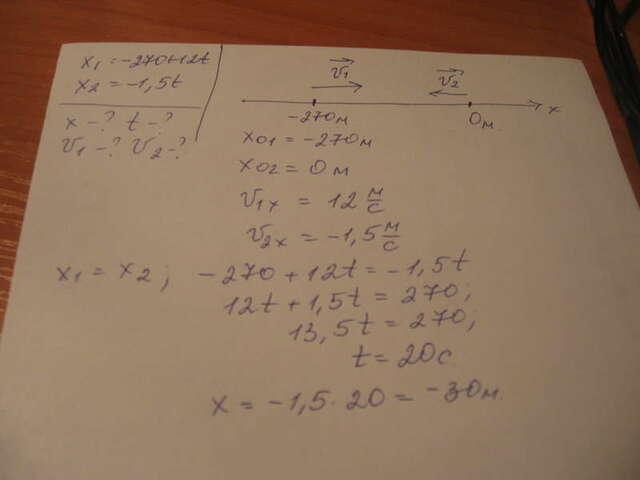 x₁ = -270+12t
x₂ = -1,5t
x -? t -?
v₁ -? v₂ -?
v₁ v₂
-270м 0м x
x₀₁ = -270м
x₀₂ = 0м
v₁ₓ = 12 м/с
v₂ₓ = -1,5 м/с
x₁ = x₂; -270 + 12t = -1,5t
12t + 1,5t = 270;
13,5t = 270;
t = 20с
x = -1,5 · 20 = -30м.